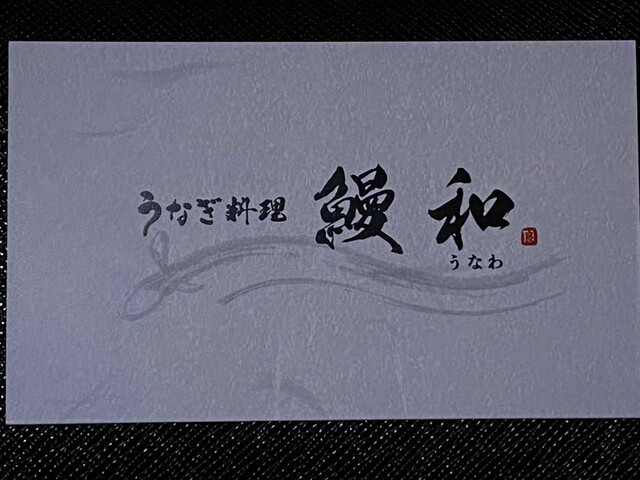 うなぎ料理 鰻和
うなわ